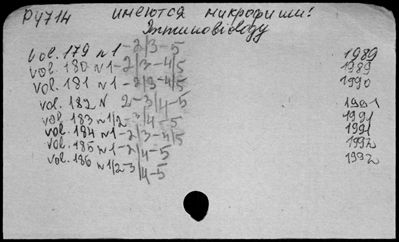 РУ714 имеются микрофиши!
Immunobiology
vol. 179 N 1-2/3-5 1989
vol. 180 N 1-2/3-4/5 1989
vol. 181 N 1-2/3-4/5 1990
vol. 182 N 2-3/4-5 1991
vol. 183 N 1/2-3/4-5 1991
vol. 184 N 1-2/3-4/5 1991
vol. 185 N 1-2/4-5 1992
vol. 186 N 1/2-3/4-5 1992